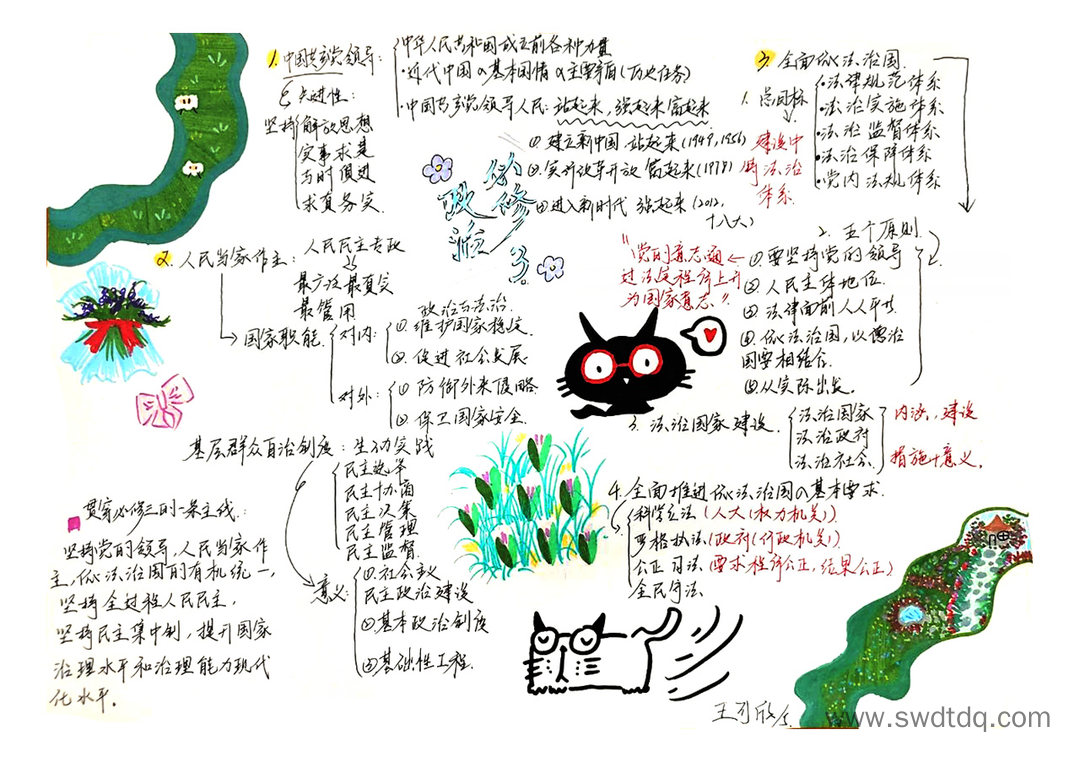 1. 中国共产党领导:
中华人民共和国成立前各种力量
·近代中国の基本国情の主要矛盾(历史任务)
·中国共产党领导人民:站起来,强起来富起来
① 建立新中国 站起来(1949,1956)
②实行改革开放 富起来(1978)
③进入新时代 强起来(2012.
十八大)
先进性:
坚持
解放思想
实事求是
与时俱进
求真务实
必修3
政治
2. 人民当家作主:
人民民主专政
最广泛最真实
最管用
国家职能
对内:
政治与法治.
① 维护国家稳定
②. 促进社会发展
对外:
① 防御外来侵略
② 保卫国家安全.
基层群众自治制度:生动实践
民主选举
民主协商
民主决策
民主管理
民主监督
意义:
①社会主义
民主政治建设
②基本政治制度
③基础性工程.
贯穿必修三的一条主线:
坚持党的领导,人民当家作
主,依法治国的有机统一,
坚持全过程人民民主,
坚持民主集中制,提升国家
治理水平和治理能力现代
化水平.
3. 全面依法治国.
1. 总目标
建设中
国法治
体系
·法律规范体系
·法治实施体系
·法治监督体系
·法治保障体系
·党内法规体系
2. 五个原则
①要坚持党的领导
②人民主体地位
③法律面前人人平等
④依法治国,以德治
国要相结合.
⑤从实际出发.
"党的意志通
过法定程序上升
为国家意志".
3. 法治国家建设.
法治国家
法治政府
法治社会.
内涵,建设
措施+意义.
4. 全面推进依法治国の基本要求.
科学立法(人大(权力机关))
严格执法(政府(行政机关))
公正司法(要求程序公正,结果公正)
全民守法
www.swdtdq.com